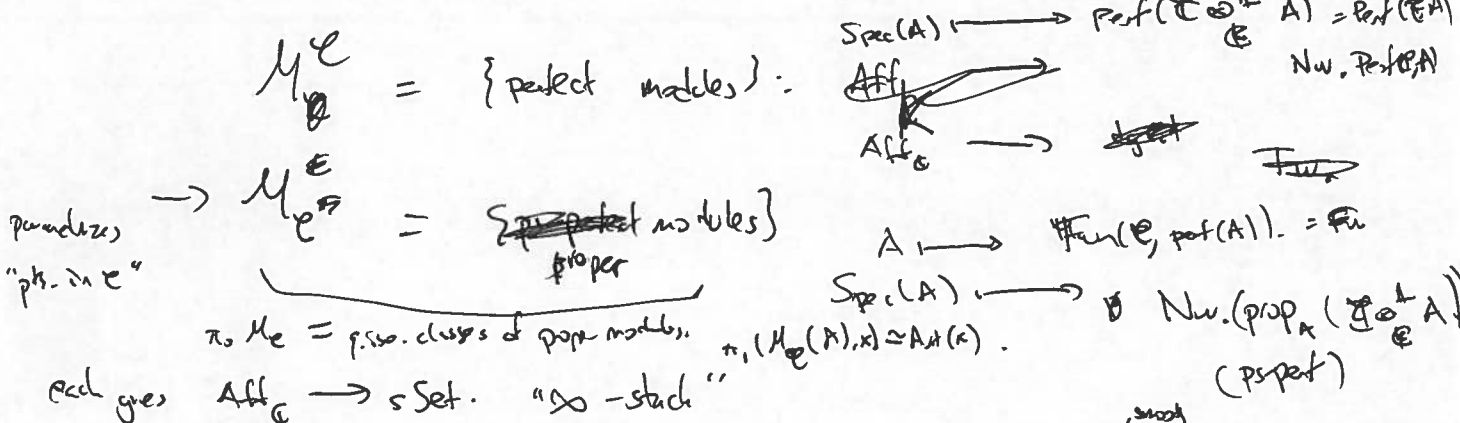 M^C = {perfect modules}.
Spec(A) ⟼ Perf(C ⊗^L_ℂ A) = Perf(C,A)
Nw. Perf(C,A)
Aff_ℂ ⟶
→ M_C = {proper modules}
"pts. in C"
A ⟼ Fun(C, perf(A)). =
Spec(A) ⟼ Nw.(prop_A (C ⊗^L_ℂ A))
(psperf)
π₀ M_C = q.iso. classes of proper modules.
π₁(M_C(A),x) ≃ Aut(x).
each gives Aff_ℂ ⟶ sSet. "∞-stack"